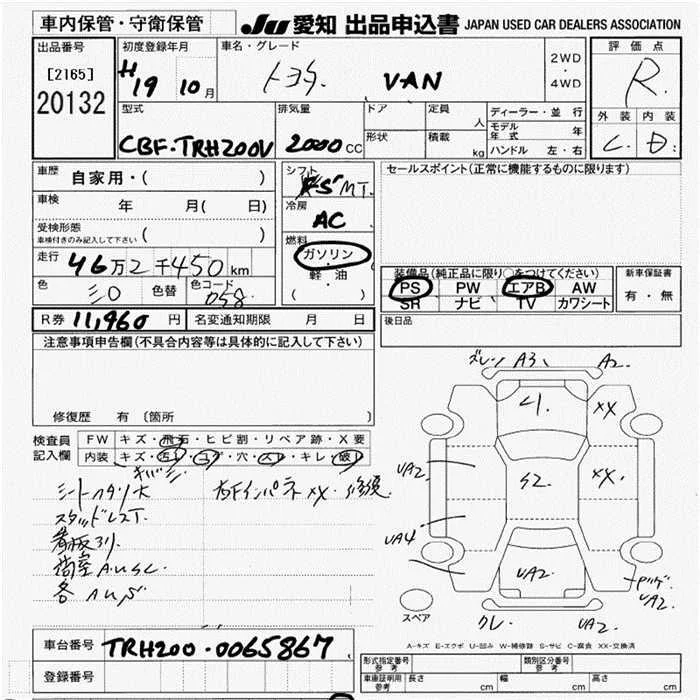 車内保管・守衛保管
JU 愛知 出品申込書 JAPAN USED CAR DEALERS ASSOCIATION
出品番号
[2165]
20132
初度登録年月
H19 10月
車名・グレード
トヨタ VAN
2WD
・
4WD
評価点
R
外装 内装
C D
型式
CBF-TRH200V
排気量
2000 CC
ドア
形状
定員 人
積載 kg
ディーラー・並行
モデル年式 年
ハンドル 左・右
車歴 自家用・( )
車検 年 月( 日)
受検形態
車検付きのみ記入して下さい ( )
走行 46万2千450km
色 シロ 色替 色コード 058
シフト
F5 MT
冷房
AC
燃料
ガソリン
軽・油
( )
セールスポイント(正常に機能するものに限ります)
装備品(純正品に限り○をつけてください)
PS PW エアB AW
SR ナビ TV カワシート
新車保証書
有・無
R券 11,960円 名変通知期限 月 日
後日品
注意事項申告欄(不具合内容等は具体的に記入して下さい)
修復歴 有 〔箇所
検査員
記入欄
FW キズ・飛石・ヒビ割・リペア跡・X要
内装 キズ・汚れ・コゲ・穴・スレ・キレ・破レ
シートハタリ大
スタッドレスT.
看板ヌリ
右Fインパネ XX 修復
ズレ A3 A2
4. XX
UA2 S2 XX
UA4
UA2
UA2
クレ UA2
スペア
A-キズ E-エクボ U-凹み W-補修跡 S-サビ C-腐食 XX-交換済
車台番号 TRH200-0065867
登録番号
型式指定番号
参考
類別区分番号
参考
車庫証明用
参考
長さ cm 幅 cm 高さ cm